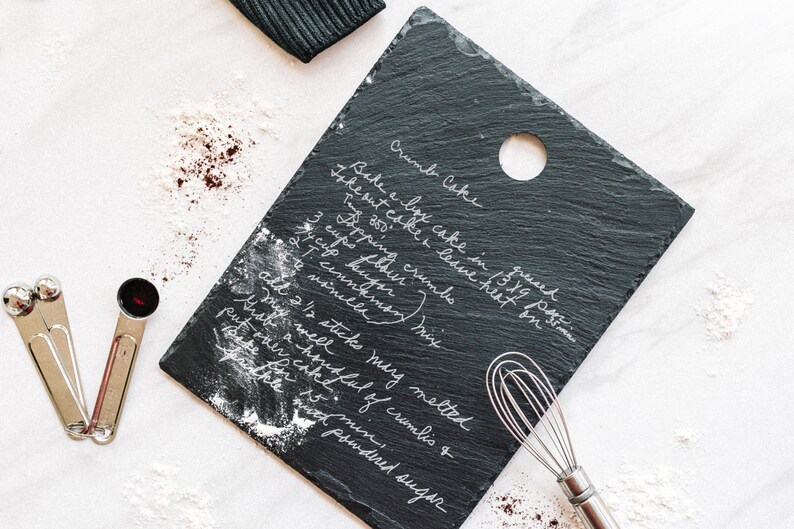 Crumb Cake
Bake a box cake in greased 13x9 pan
Take out cake & leave heat on
Temp 350° 35 min
Topping crumbs
3 cups flour
3/4 cup sugar
2 T cinnamon
2 " vanilla } mix
add 2 1/2 sticks marg melted
mix well
Grab a handful of crumbs &
put over cake
Bake for 15 min.
Sprinkle powdered sugar